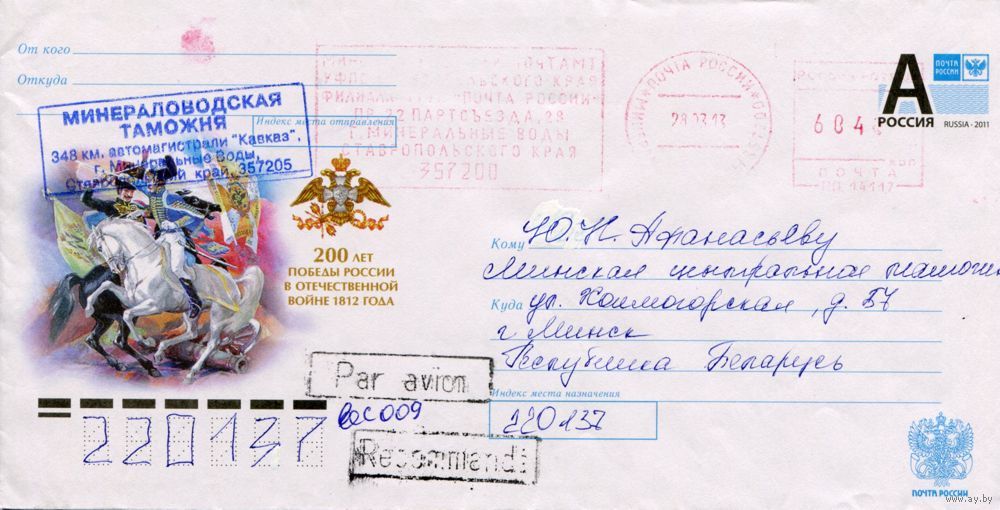 От кого
Откуда
МИНЕРАЛОВОДСКАЯ
ТАМОЖНЯ
348 км. автомагистрали "Кавказ",
г. Минеральные Воды,
край, 357205
Индекс места отправления
ПОЧТАМТ
УФПС СКОГО КРАЯ
ФИЛИАЛ "ПОЧТА РОССИИ"
ПР. 22 ПАРТСЪЕЗДА, 28
Г. МИНЕРАЛЬНЫЕ ВОДЫ
СТАВРОПОЛЬСКОГО КРАЯ
357200
ПОЧТА РОССИИ
28 03 13
604
КОП
ПОЧТА
А
РОССИЯ
ПОЧТА
РОССИИ
RUSSIA - 2011
200 ЛЕТ
ПОБЕДЫ РОССИИ
В ОТЕЧЕСТВЕННОЙ
ВОЙНЕ 1812 ГОДА
Кому Ю.Н. Афанасьеву
Минская центральная таможня
Куда ул. Хоимогорская, д. 57
г Минск
Республика Беларусь
Индекс места назначения
220137
Par avion
вес 009
Recommandé
220137
ПОЧТА РОССИИ
www.ay.by